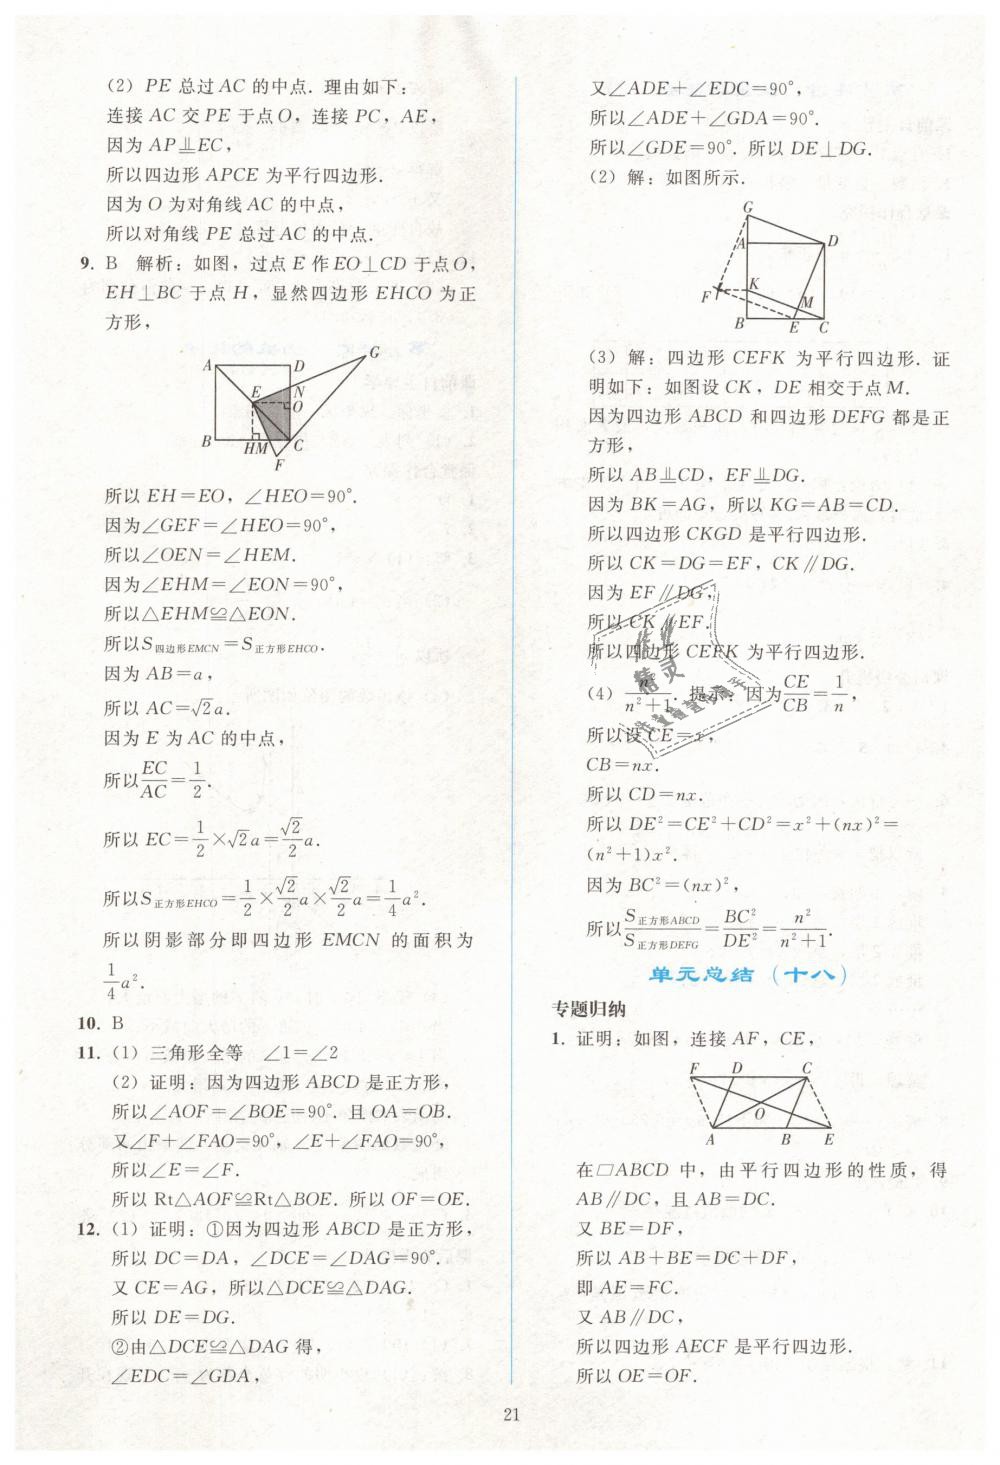 (2) PE 总过 AC 的中点. 理由如下:
连接 AC 交 PE 于点 O, 连接 PC, AE,
因为 AP⫫EC,
所以四边形 APCE 为平行四边形.
因为 O 为对角线 AC 的中点,
所以对角线 PE 总过 AC 的中点.
9. B 解析: 如图, 过点 E 作 EO⊥CD 于点 O,
EH⊥BC 于点 H, 显然四边形 EHCO 为正
方形,
A D G
E N O
B H M C
F
所以 EH=EO, ∠HEO=90°.
因为∠GEF=∠HEO=90°,
所以∠OEN=∠HEM.
因为∠EHM=∠EON=90°,
所以△EHM≌△EON.
所以S四边形EMCN=S正方形EHCO.
因为 AB=a,
所以 AC=√2a.
因为 E 为 AC 的中点,
所以EC/AC=1/2.
所以 EC=1/2×√2a=√2/2a.
所以S正方形EHCO=1/2×√2/2a×√2/2a=1/4a².
所以阴影部分即四边形 EMCN 的面积为
1/4a².
10. B
11. (1) 三角形全等 ∠1=∠2
(2) 证明: 因为四边形 ABCD 是正方形,
所以∠AOF=∠BOE=90°. 且 OA=OB.
又∠F+∠FAO=90°, ∠E+∠FAO=90°,
所以∠E=∠F.
所以 Rt△AOF≌Rt△BOE. 所以 OF=OE.
12. (1) 证明: ①因为四边形 ABCD 是正方形,
所以 DC=DA, ∠DCE=∠DAG=90°.
又 CE=AG, 所以△DCE≌△DAG.
所以 DE=DG.
②由△DCE≌△DAG 得,
∠EDC=∠GDA,
又∠ADE+∠EDC=90°,
所以∠ADE+∠GDA=90°.
所以∠GDE=90°. 所以 DE⊥DG.
(2) 解: 如图所示.
G
A D
F K M
B E C
(3) 解: 四边形 CEFK 为平行四边形. 证
明如下: 如图设 CK, DE 相交于点 M.
因为四边形 ABCD 和四边形 DEFG 都是正
方形,
所以 AB⫫CD, EF⫫DG.
因为 BK=AG, 所以 KG=AB=CD.
所以四边形 CKGD 是平行四边形.
所以 CK=DG=EF, CK∥DG.
因为 EF∥DG,
所以 CK∥EF.
所以四边形 CEFK 为平行四边形.
(4) n²/n²+1. 提示: 因为CE/CB=1/n,
所以设 CE=x,
CB=nx.
所以 CD=nx.
所以 DE²=CE²+CD²=x²+(nx)²=
(n²+1)x².
因为 BC²=(nx)²,
所以S正方形ABCD/S正方形DEFG=BC²/DE²=n²/n²+1.
单元总结 (十八)
专题归纳
1. 证明: 如图, 连接 AF, CE,
F D C
O
A B E
在▱ABCD 中, 由平行四边形的性质, 得
AB∥DC, 且 AB=DC.
又 BE=DF,
所以 AB+BE=DC+DF,
即 AE=FC.
又 AB∥DC,
所以四边形 AECF 是平行四边形.
所以 OE=OF.
21
作业
精灵